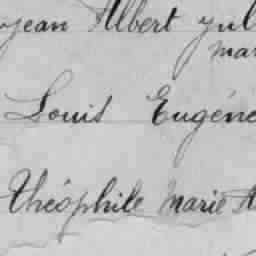 jean Albert jul
mar
Louis Eugéne
théophile marie A